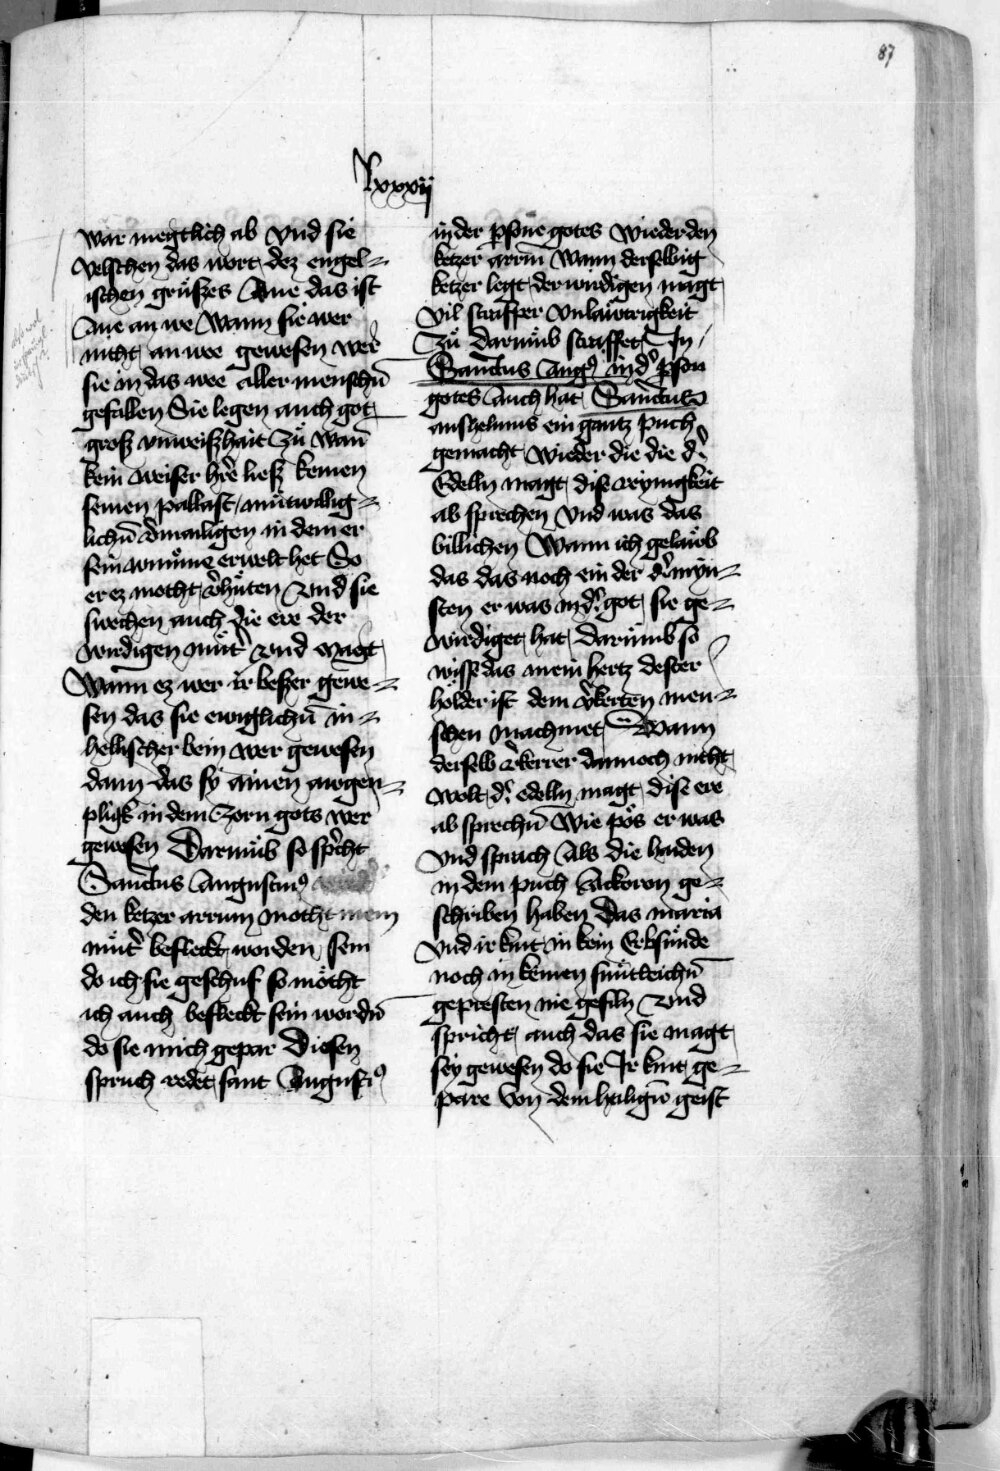 87
lxxxij
war megtlich ab vnd sie
velschen das wort dez engel-
ischen grüszes Aue das ist
Aue an we Wann sie wer
nicht an wee gewesen wer
sie in das wee aller menschn̄
gefallen Sie legen auch got
grosz vnweiszhait zů wan̄
kein weiser hr̄e liesz keinen
seinen pallast mütwillig-
lichn̄ vmailigen in dem er
sein wonūng erwelt het So
er ez mocht v̉hüten vnd sie
swechen auch die ere der
wirdigen müt̉ vnd magt
Wann ez wer ir beszer gewe-
sen das sie ewiglichn̄ in
hellischer bein wer gewesen
dann das sy ainen awgen-
plick in dem zorn gots wer
gewesen Darumb so sp̉cht
Sanctus Augustin9
den ketzer arrium mocht mein
müt̉ befleckt worden sein
do ich sie geschuf so möcht
ich auch befleckt sein wordn̄
do sie mich gepar Diesen
spruch redet sant August9
in der p̱sone gotes wieder den
ketzer arriū Wann derselbig
ketzer legt der wirdigen magt
vil straffper vnlawtrigkeit
zů darumb straffet In
Sanctus Aug9 in d̉ p̱son
gotes Auch hat Sanctus
anshelmus ein gantz puch
gemacht wieder die die d̉
Edelln magt dise reynigkeit
ab sprechen vnd was das
billichen Wann ich gelawb
das das noch ein der d̉ myn-
sten er was in d̉ got sie ge-
wirdiget hat darumb so
wisse das mein hertz dester
hölder ist dem v̉kerten men-
schen machmet Wann
derselb v̉kerrer dannoch nicht
wolt d̉ edelln magt dise ere
ab sprechn̄ Wie pös er was
vnd sprach Als die haiden
in dem puch Alckoron ge-
schriben haben Das maria
vnd ir kint in kein Erbsünde
noch in keinen süntleichn̄
gepresten nie gefiln vnd
spricht auch das sie magt
sey gewesen do sie Ir kint ge-
pare Von dem heilign̄ geist